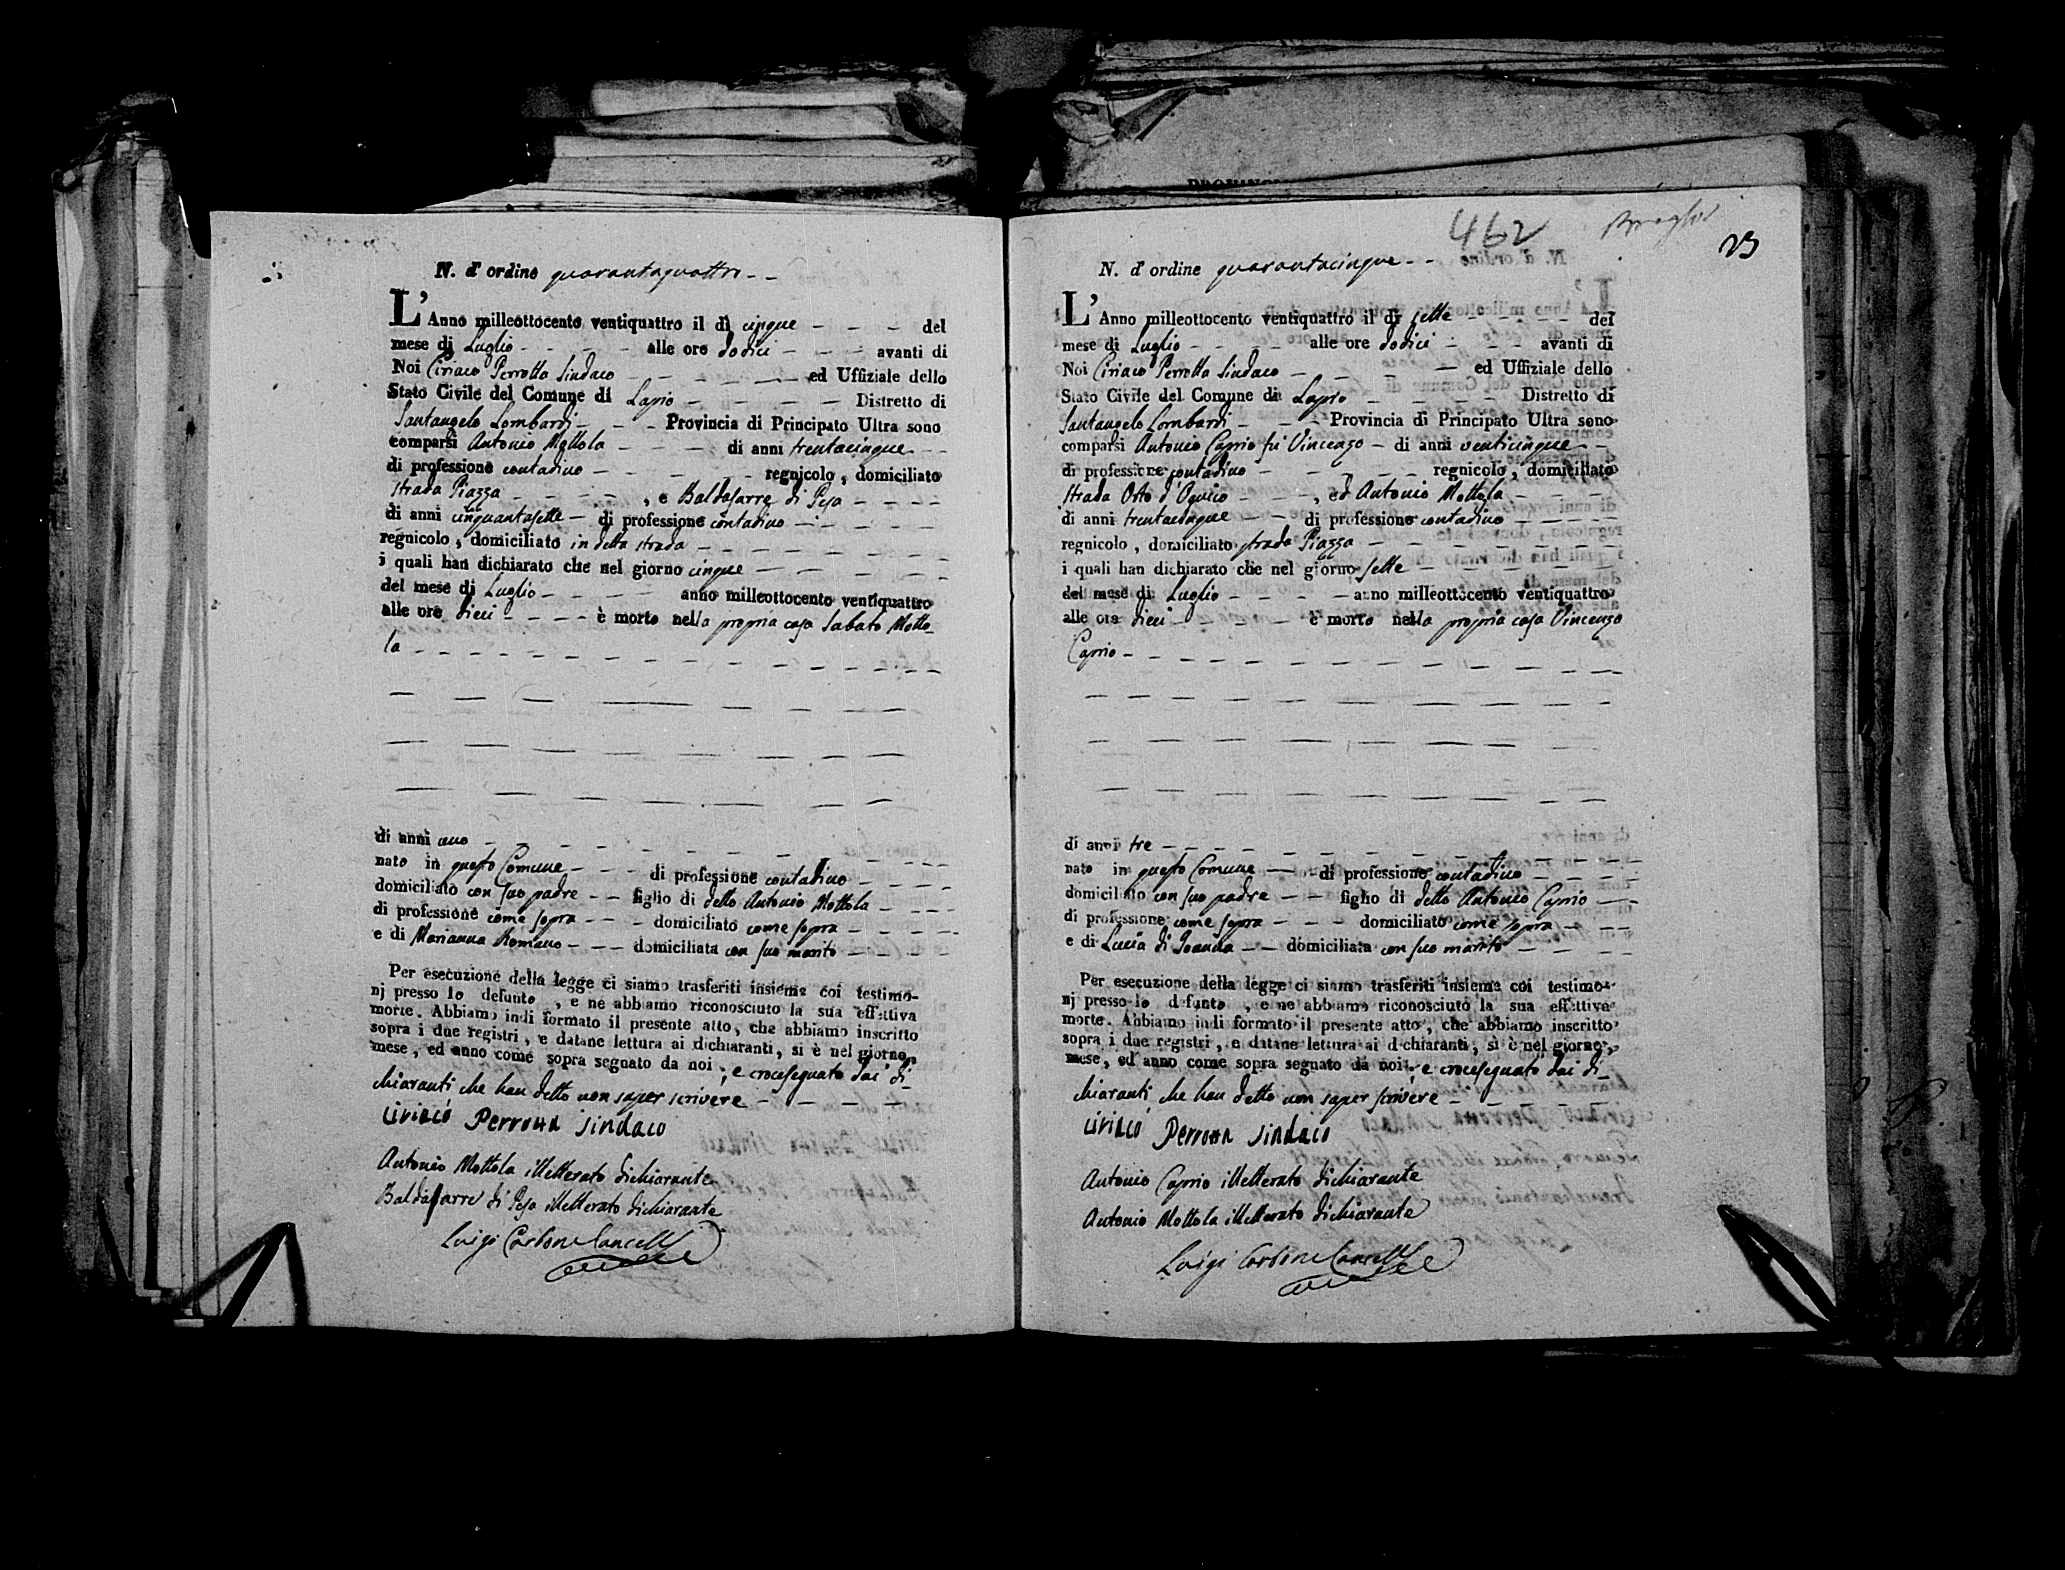 N. d' ordine quarantaquattro
L' Anno milleottocento ventiquattro il dì cinque - - - del
mese di Luglio - - - - alle ore dodici - - - avanti di
Noi Ciriaco Perrotta Sindaco - - - - - ed Uffiziale dello
Stato Civile del Comune di Lapio - - - - - Distretto di
Santangelo Lombardi - - - Provincia di Principato Ultra sono
comparsi Antonio Mottola - - - - di anni trentacinque - -
di professione contadino - - - - - - regnicolo, domiciliato
strada Piazza - - - - - , e Baldasarre di Peso - - - -
di anni cinquantasette - di professione contadino - - - - -
regnicolo, domiciliato in detta strada - - - - - - -
i quali han dichiarato che nel giorno cinque - - - - -
del mese di Luglio - - - - anno milleottocento ventiquattro
alle ore dieci - - - - è morto nella propria casa Sabato Motto-
la - - - - - - - - - - - - - - -
di anni uno - - - - - - - - - -
nato in questo Comune - - - di professione contadino - - - -
domiciliato con suo padre - - figlio di detto Antonio Mottola - - - -
di professione come sopra - - - domiciliato come sopra - - - - -
e di Marianna Romano - - - domiciliata con suo marito - - - -
Per esecuzione della legge ci siamo trasferiti insieme coi testimo-
nj presso lo defunto , e ne abbiamo riconosciuto la sua effettiva
morte. Abbiamo indi formato il presente atto, che abbiamo inscritto
sopra i due registri, e datane lettura ai dichiaranti, si è nel giorno,
mese, ed anno come sopra segnato da noi; e crocesegnato dai di-
chiaranti che han detto non saper scrivere - - - - -
Ciriaco Perrotta Sindaco
Antonio Mottola illetterato dichiarante
Baldasarre di Peso illetterato dichiarante
Luigi Carbone Cancell
462
23
N. d' ordine quarantacinque - -
L' Anno milleottocento ventiquattro il dì sette - - - - - del
mese di Luglio - - - - alle ore dodici - - - avanti di
Noi Ciriaco Perrotta Sindaco - - - - ed Uffiziale dello
Stato Civile del Comune di Lapio - - - - - Distretto di
Santangelo Lombardi - - - Provincia di Principato Ultra sono
comparsi Antonio Caprio fu Vincenzo - di anni venticinque - -
di professione contadino - - - - - - regnicolo, domiciliato
strada Orto d' - - - , ed Antonio Mottola - - - -
di anni trentacinque - - di professione contadino - - - -
regnicolo, domiciliato strada Piazza - - - - - - -
i quali han dichiarato che nel giorno sette - - - - -
del mese di Luglio - - - - anno milleottocento ventiquattro
alle ore dieci - - - - è morto nella propria casa Vincenzo
Caprio - - - - - - - - - - - - - -
di anni tre - - - - - - - - - -
nato in questo Comune - di professione contadino - - - -
domiciliato con suo padre - - figlio di detto Antonio Caprio - -
di professione come sopra - - - domiciliato come sopra - - -
e di Lucia di Joanna - - domiciliata con suo marito - - - -
Per esecuzione della legge ci siamo trasferiti insieme coi testimo-
nj presso lo defunto , e ne abbiamo riconosciuto la sua effettiva
morte. Abbiamo indi formato il presente atto, che abbiamo inscritto
sopra i due registri, e datane lettura ai dichiaranti, si è nel giorno,
mese, ed anno come sopra segnato da noi; e crocesegnato dai di-
chiaranti che han detto non saper scrivere - - - -
Ciriaco Perrotta Sindaco
Antonio Caprio illetterato dichiarante
Antonio Mottola illetterato dichiarante
Luigi Carbone Cancell